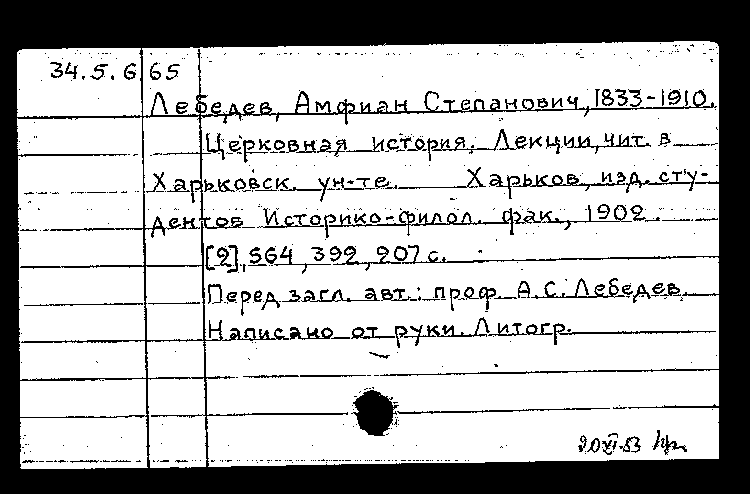 34.5.6.65
Лебедев, Амфиан Степанович, 1833-1910.
Церковная история. Лекции, чит. в
Харьковск. ун-те. Харьков, изд. сту-
дентов Историко-филол. фак., 1902.
[2], 564, 392, 207 с.
Перед загл. авт.: проф. А.С. Лебедев.
Написано от руки. Литогр.
20.XI.53